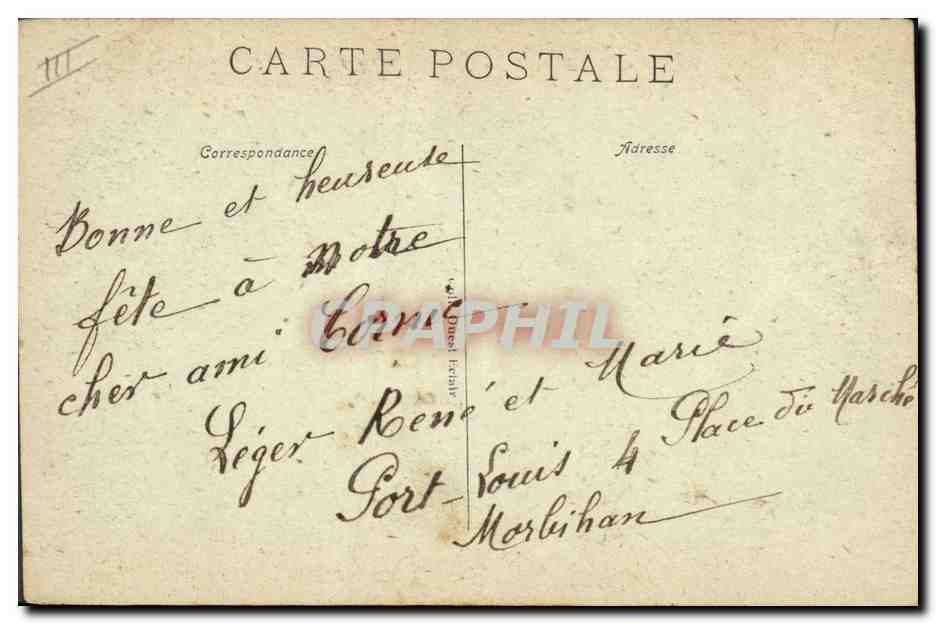 III
CARTE POSTALE
Correspondance
Adresse
Bonne et heureuse
fête à notre
cher ami Cornic
Léger René et Marie
Port-Louis 4 Place du Marché
Morbihan
Ouest Eclair
CPAPHIL